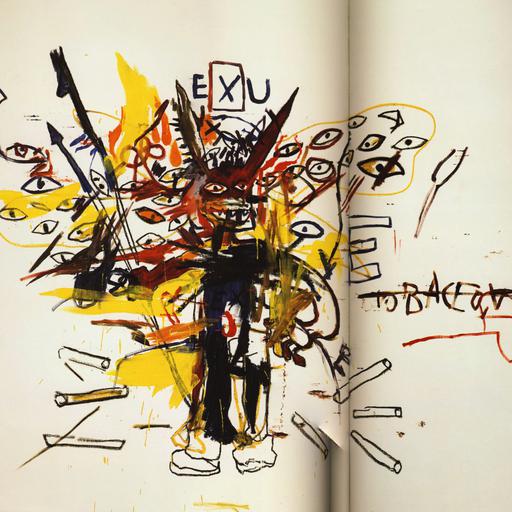 EXU
TOBACCO